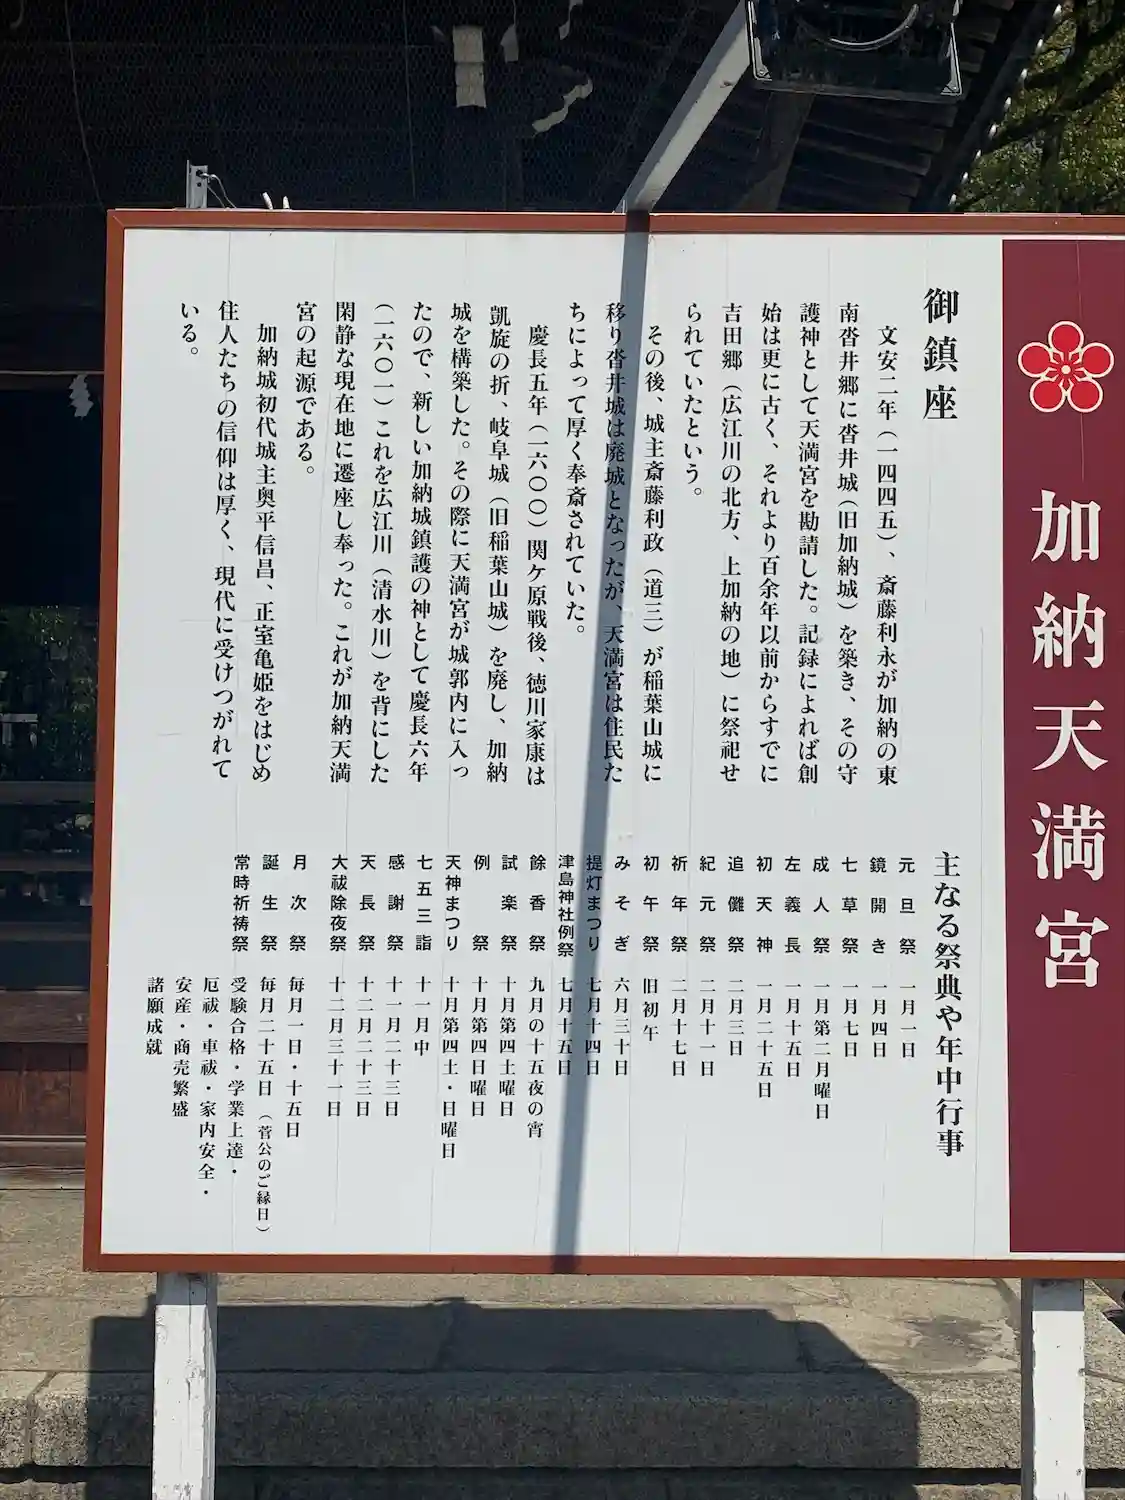 加納天満宮
御鎮座
文安二年（一四四五）、斎藤利永が加納の東
南沓井郷に沓井城（旧加納城）を築き、その守
護神として天満宮を勘請した。記録によれば創
始は更に古く、それより百余年以前からすでに
吉田郷（広江川の北方、上加納の地）に祭祀せ
られていたという。
その後、城主斎藤利政（道三）が稲葉山城に
移り沓井城は廃城となったが、天満宮は住民た
ちによって厚く奉斎されていた。
慶長五年（一六〇〇）関ケ原戦後、徳川家康は
凱旋の折、岐阜城（旧稲葉山城）を廃し、加納
城を構築した。その際に天満宮が城郭内に入っ
たので、新しい加納城鎮護の神として慶長六年
（一六〇一）これを広江川（清水川）を背にした
閑静な現在地に遷座し奉った。これが加納天満
宮の起源である。
加納城初代城主奥平信昌、正室亀姫をはじめ
住人たちの信仰は厚く、現代に受けつがれて
いる。
主なる祭典や年中行事
元旦祭 一月一日
鏡開き 一月四日
七草祭 一月七日
成人祭 一月第二月曜日
左義長 一月十五日
初天神 一月二十五日
追儺祭 二月三日
紀元祭 二月十一日
祈年祭 二月十七日
初午祭 旧初午
みそぎ 六月三十日
提灯まつり 七月十四日
津島神社例祭 七月十五日
餘香祭 九月の十五夜の宵
試楽祭 十月第四土曜日
例祭 十月第四日曜日
天神まつり 十月第四土・日曜日
七五三詣 十一月中
感謝祭 十一月二十三日
天長祭 十二月二十三日
大祓除夜祭 十二月三十一日
月次祭 毎月一日・十五日
誕生祭 毎月二十五日（菅公のご縁日）
常時祈祷祭 受験合格・学業上達・
厄祓・車祓・家内安全・
安産・商売繁盛
諸願成就